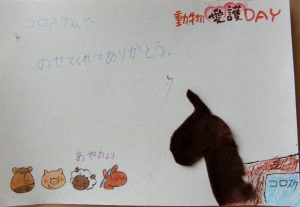 動物愛護DAY
コロスケくんへ
のせてくれてありがとう。
あやのより
コロスケ